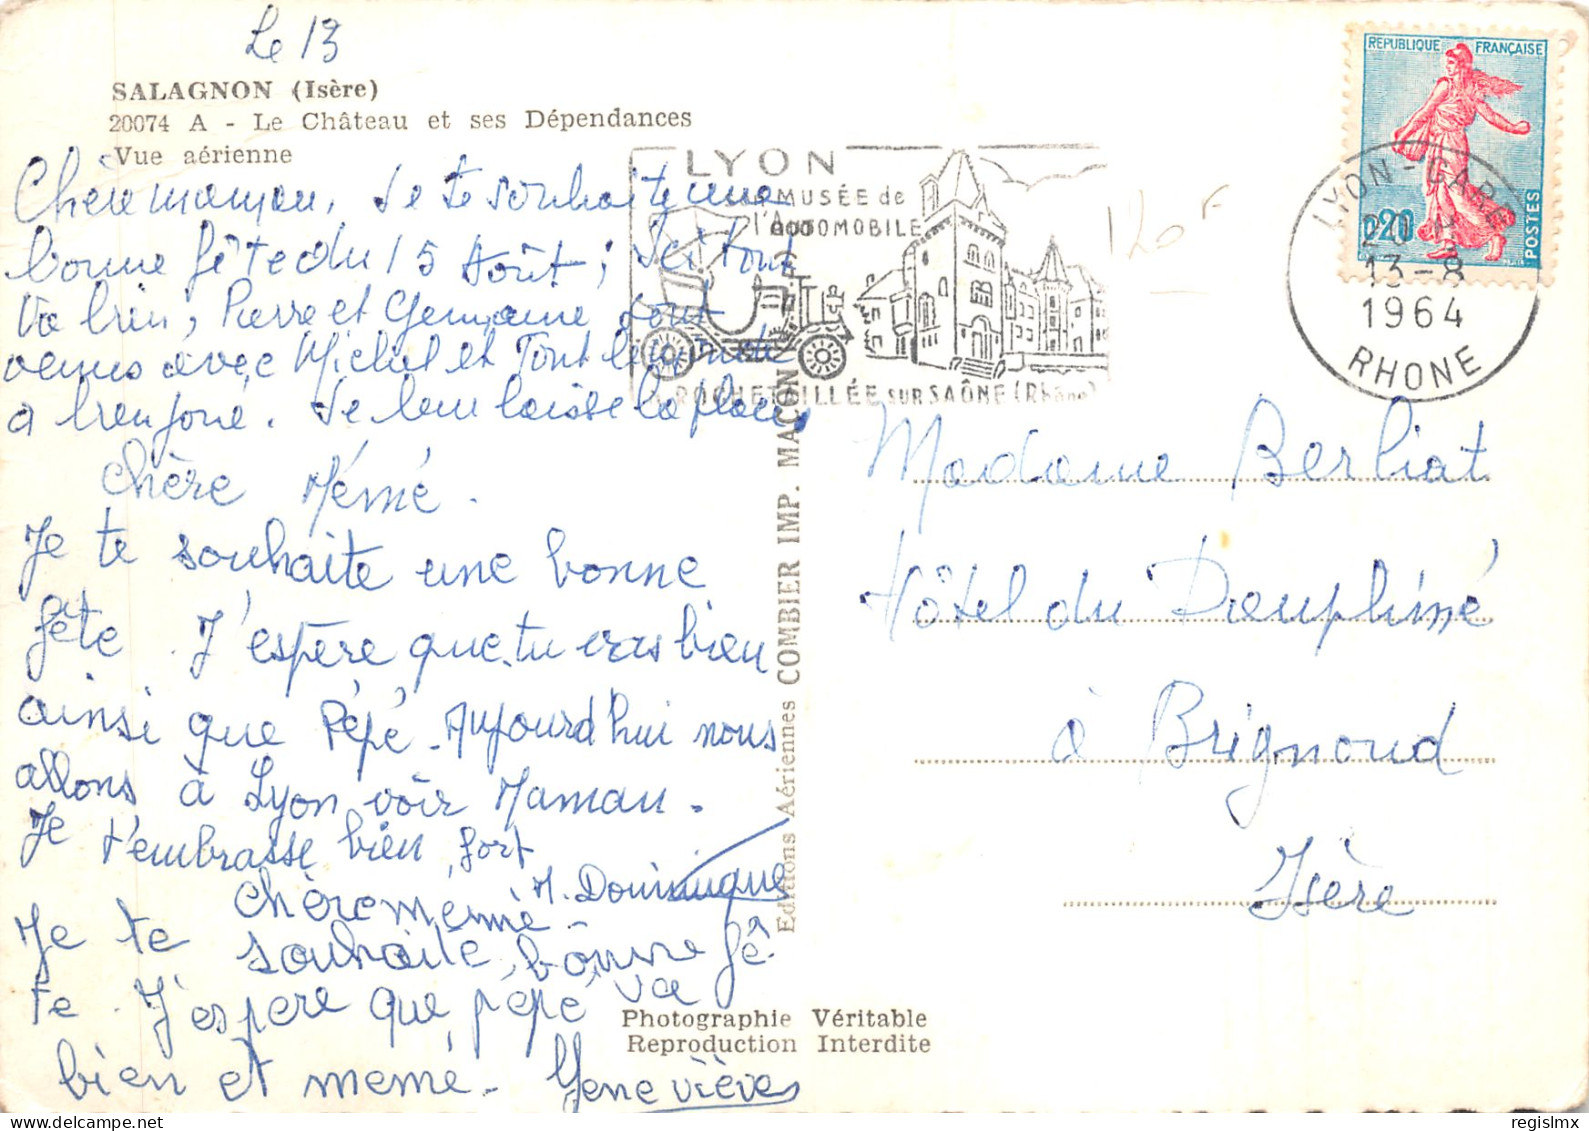 Le 13
SALAGNON (Isère)
20074 A - Le Château et ses Dépendances
Vue aérienne
Chère maman, Je te souhaite une
bonne fête du 15 Août, Ici tout
va bien, Pierre et Germaine sont
venus avec Michel et Tout le monde
a bien joué. Je leur laisse la place,
Chère Mémé.
Je te souhaite une bonne
fête. J'espère que tu vas bien
ainsi que Pépé. Aujourd'hui nous
allons à Lyon voir Maman.
Je t'embrasse bien fort
M. Dominique
Chère mémé
Je te souhaite bonne fê-
te. J'espère que pépé va
bien et mémé. Geneviève
LYON
MUSÉE de
l'AUTOMOBILE
ROCHETAILLÉE SUR SAÔNE (Rhône)
120 F
REPUBLIQUE FRANÇAISE
0,20
POSTES
LYON-GARE
13-8
1964
RHONE
Editions Aériennes COMBIER IMP. MACON
Madame Berliat
Hôtel du Dauphiné
à Brignoud
Isère
Photographie Véritable
Reproduction Interdite
regislmx
delcampe.net